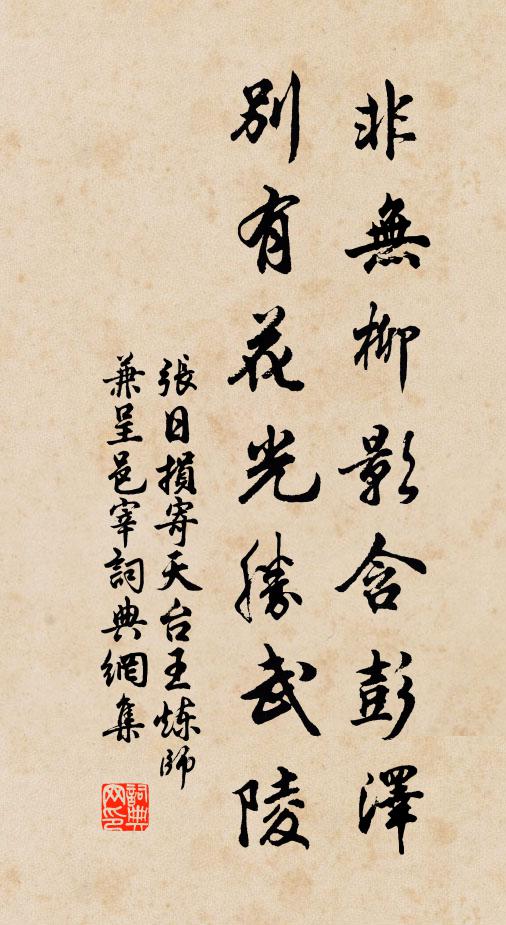 非無柳影含彭澤
別有花光勝武陵
張日損寄天台王煉師
兼呈邑宰詞典網集
詞典
网印